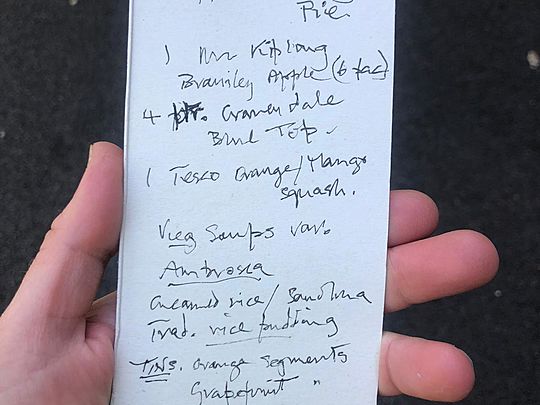 Pie.
1 Mr Kipling
Bramley Apple (6 pac)
4 Cravendale
Blue Top
1 Tesco Orange/Mango
squash.
Veg Soups var.
Ambrosia
Creamed rice/ Semolina
Trad. rice pudding
TINS. Orange Segments
Grapefruit "